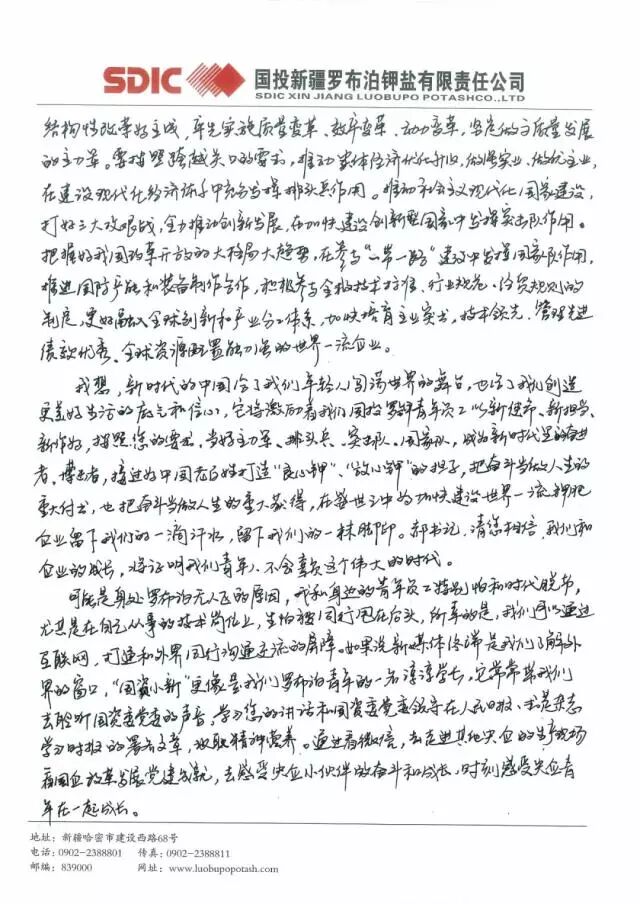 SDIC 国投新疆罗布泊钾盐有限责任公司
SDIC XIN JIANG LUOBUPO POTASHCO.,LTD
结构性改革好主线,率先实施质量变革、效率变革、动力变革,坚定做高质量发展
的主力军。要按照跨越关口的要求,推动整体经济优化升级,做强实业、做优主业,
在建设现代化经济体系中充分发挥排头兵作用。推动社会主义现代化国家建设,
打好三大攻坚战,全力推动创新发展,在加快建设创新型国家中发挥突击队作用。
把握好我国改革开放的大格局大趋势,在参与“一带一路”建设中发挥国家队作用,
推进国际产能和装备制作合作,积极参与全球技术标准、行业规范、经贸规则的
制定,更好融入全球创新和产业分工体系,加快培育主业突出、技术领先、管理先进
绩效优秀、全球资源配置能力强的世界一流企业。
我想,新时代的中国给了我们年轻人闯荡世界的舞台,也给了我们创造
更美好生活的底气和信心,它将激励着我们国投罗钾青年员工以新使命、新担当、
新作为,按照您的要求,当好主力军、排头兵、突击队、国家队,成为新时代里的奋进
者、搏击者,接过好中国老百姓打造“良心钾”、“放心钾”的担子,把奋斗当做人生的
重大付出,也把奋斗当做人生的重大获得,在盛世之中为加快建设世界一流钾肥
企业留下我们的一滴汗水,留下我们的一抹脚印。郝书记,请您相信,我们和
企业的成长,将证明我们青年人不会辜负这个伟大的时代。
可能是身处罗布泊无人区的原因,我和身边的青年员工特别怕和时代脱节,
尤其是在自己从事的技术岗位上,生怕被同行甩在后头,所幸的是,我们可以通过
互联网,打通和外界同行沟通交流的屏障。如果说新媒体终端是我们了解外
界的窗口,“国资小新”更像是我们罗布泊青年的一名谆谆学长,它常常带我们
去聆听国资委党委的声音,学习您的讲话和国资委党委领导在人民日报、求是杂志
学习时报的署名文章,收取精神营养。通过看微信,去走进其他央企的生产现场
看国企改革发展党建成就,去感受央企小伙伴的奋斗和成长,时刻感受央企青
年在一起成长。
地址:新疆哈密市建设西路68号
电话:0902-2388801 传真:0902-2388811
邮编:839000 网址:www.luobupopotash.com